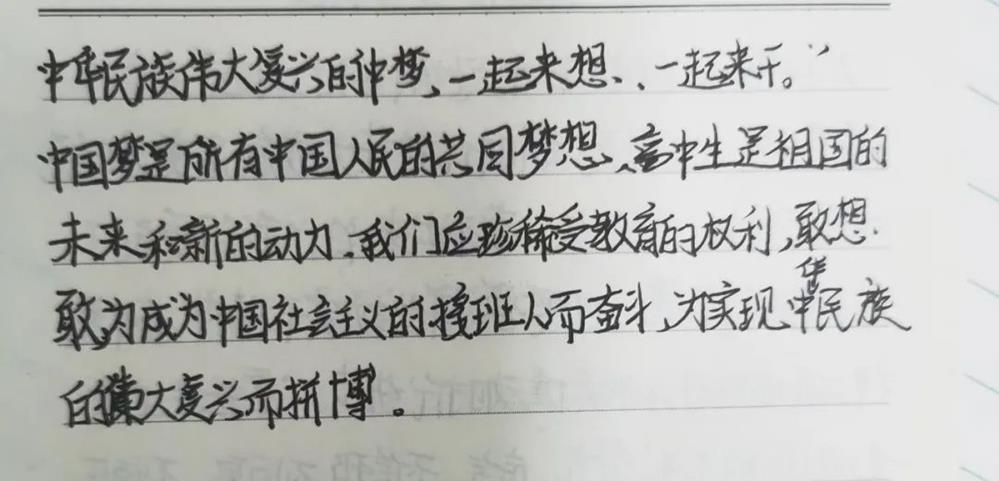 中华民族伟大复兴的中梦,一起来想、一起来干。”
中国梦是所有中国人民的共同梦想,高中生是祖国的
未来和新的动力,我们应珍稀受教育的权利,敢想
敢为成为中国社会主义的接班人而奋斗,为实现中华民族
的伟大复兴而拼博。